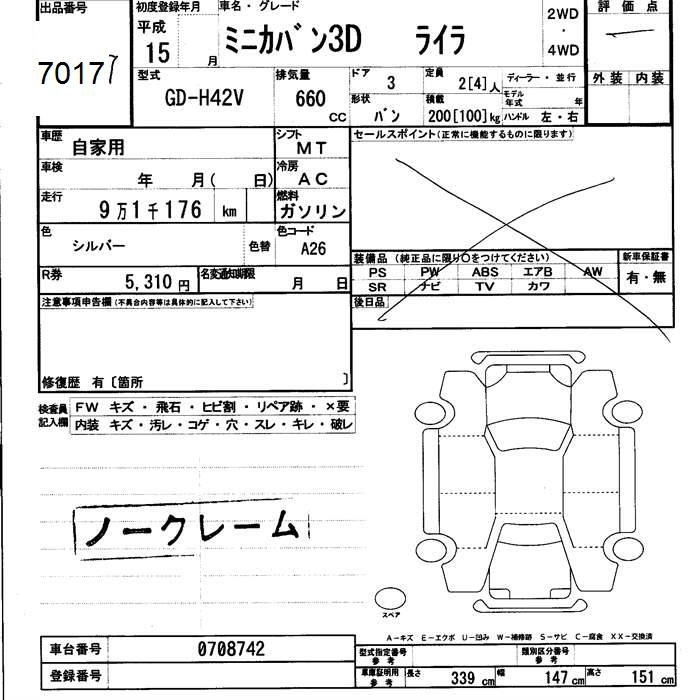 出品番号 初度登録年月 車名・グレード 評価点
平成 2WD
7017 15 月 ミニカバン3D ライラ ・
4WD
外装 内装
型式 排気量 ドア 3 定員 2[4]人 ディーラー・並行
GD-H42V 660 モデル年式 年
CC 形状 バン 積載 200[100]kg ハンドル 左・右
車歴 自家用 シフト MT セールスポイント(正常に機能するものに限ります)
車検 年 月( 日) 冷房 AC
走行 9万1千176 km 燃料 ガソリン
色 シルバー 色替 色コード A26
装備品 (純正品に限り〇をつけてください) 新車保証書
PS PW ABS エアB AW 有・無
SR ナビ TV カワ
R券 5,310円 名変通知期限 月 日
後日品
注意事項申告欄(不具合内容等は具体的に記入して下さい)
修復歴 有〔箇所 〕
検査員 FW キズ・飛石・ヒビ割・リペア跡・×要
記入欄 内装 キズ・汚レ・コゲ・穴・スレ・キレ・破レ
ノークレーム
スペア
A-キズ E-エクボ U-凹み W-補修跡 S-サビ C-腐食 XX-交換済
車台番号 0708742 型式指定番号 参考 類別区分番号 参考
登録番号 車庫証明用 参考 長さ 339 cm 幅 147 cm 高さ 151 cm